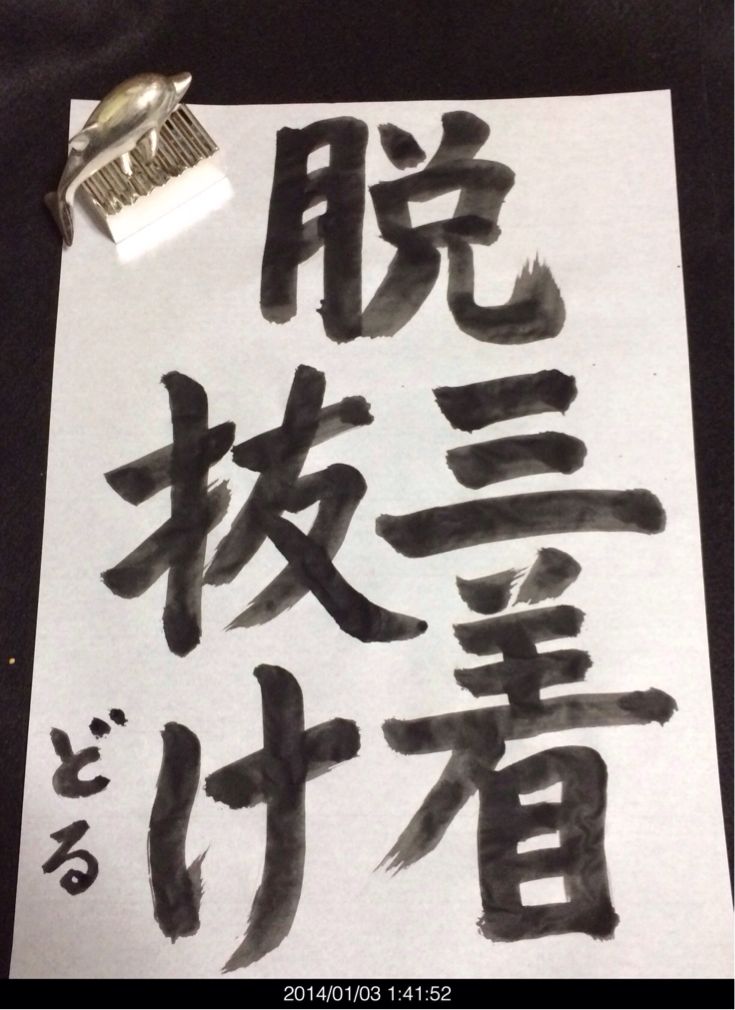 脱
三着
抜け
どる
2014/01/03 1:41:52